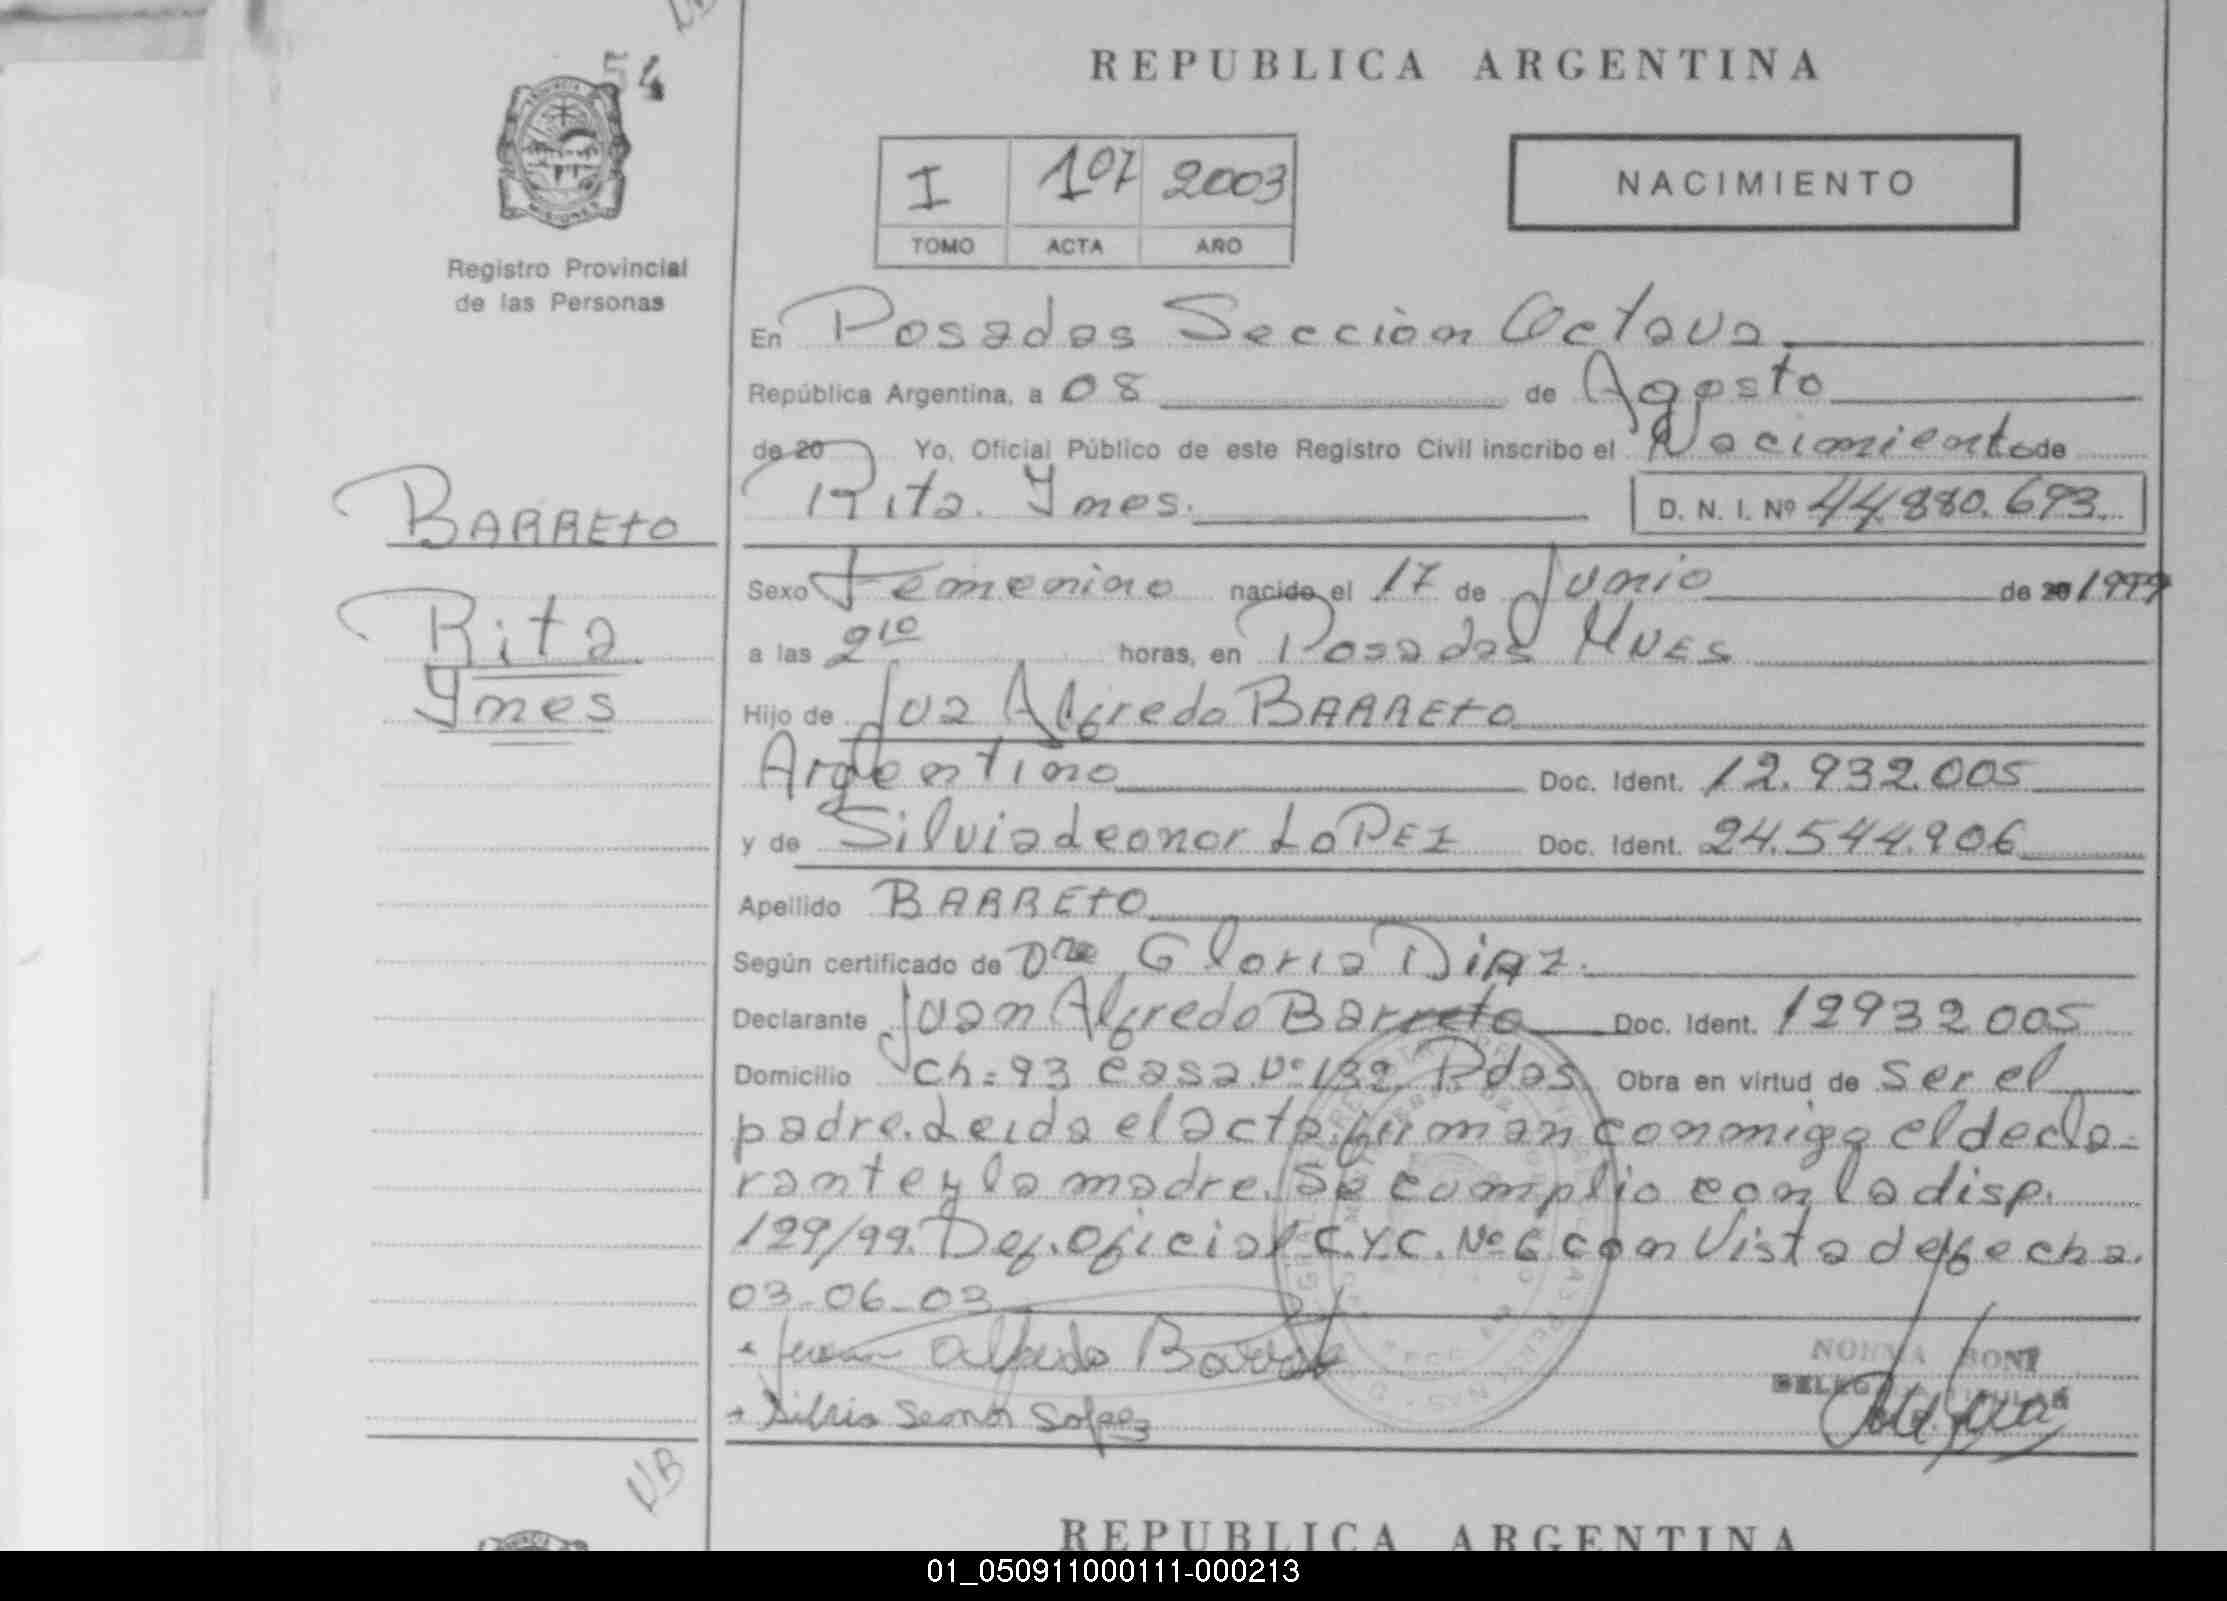 54
REPUBLICA ARGENTINA
PROVINCIA
MISIONES
I 107 2003
TOMO ACTA AÑO
NACIMIENTO
Registro Provincial
de las Personas
En Posadas Sección Octava
República Argentina, a 08 de Agosto
de 20 Yo, Oficial Público de este Registro Civil inscribo el Nacimiento de
Rita. Ynes. D. N. I. Nº 44.880.693.
BARREtO
Rita
Ynes
Sexo Femenino nacido el 17 de Junio de 20 1999
a las 2 10 horas, en Posadas Mnes
Hijo de Jua Alfredo BARREtO
Argentino Doc. Ident. 12.932.005
y de Silvia Leonor LoPEZ Doc. Ident. 24.544.906
Apellido BARREtO
Según certificado de Dra Gloria DiAZ.
Declarante Juan Alfredo Barreto Doc. Ident. 12932005
Domicilio Ch=93 Casa Nº 132 Pdas Obra en virtud de Ser el
padre. Leida el acta firman conmigo el decla-
rante y la madre. Se cumplio con la disp.
129/99. Def. oficial C.Y.C. Nº 6 con Vista de fecha.
03-06-03
Juan Alfredo Barreto
Silvia Leonor Lopez
NB
REPUBLICA ARGENTINA
01_050911000111-000213